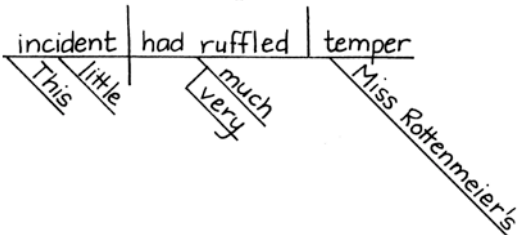 incident had ruffled temper
This little very much Miss Rottenmeier's